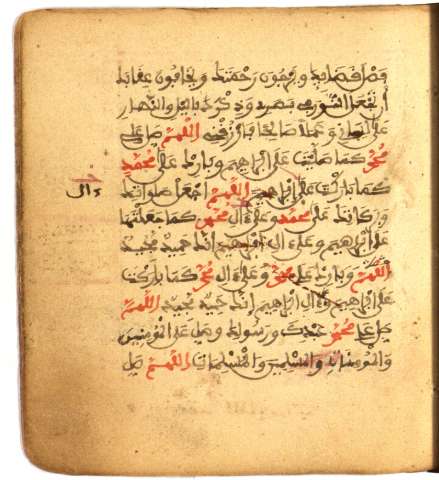 ويرجون رحمتك ويخافون عقابك
أن تجعل النور في بصري وذكرك بالليل والنهار
على لساني وعملا صالحا فارزقني اللهم صل على
محمد كما صليت على إبراهيم وبارك على محمد
كما باركت على إبراهيم اللهم اجعل صلواتك
وءال
وبركاتك على محمد وعلى ءال محمد كما جعلتها
على إبراهيم وعلى ءال إبراهيم إنك حميد مجيد
اللهم وبارك على محمد وعلى ءال محمد كما باركت
على إبراهيم وءال إبراهيم إنك حميد مجيد اللهم
صل على محمد عبدك ورسولك وصل على المومنين
والمومنات والمسلمين والمسلمات اللهم صل